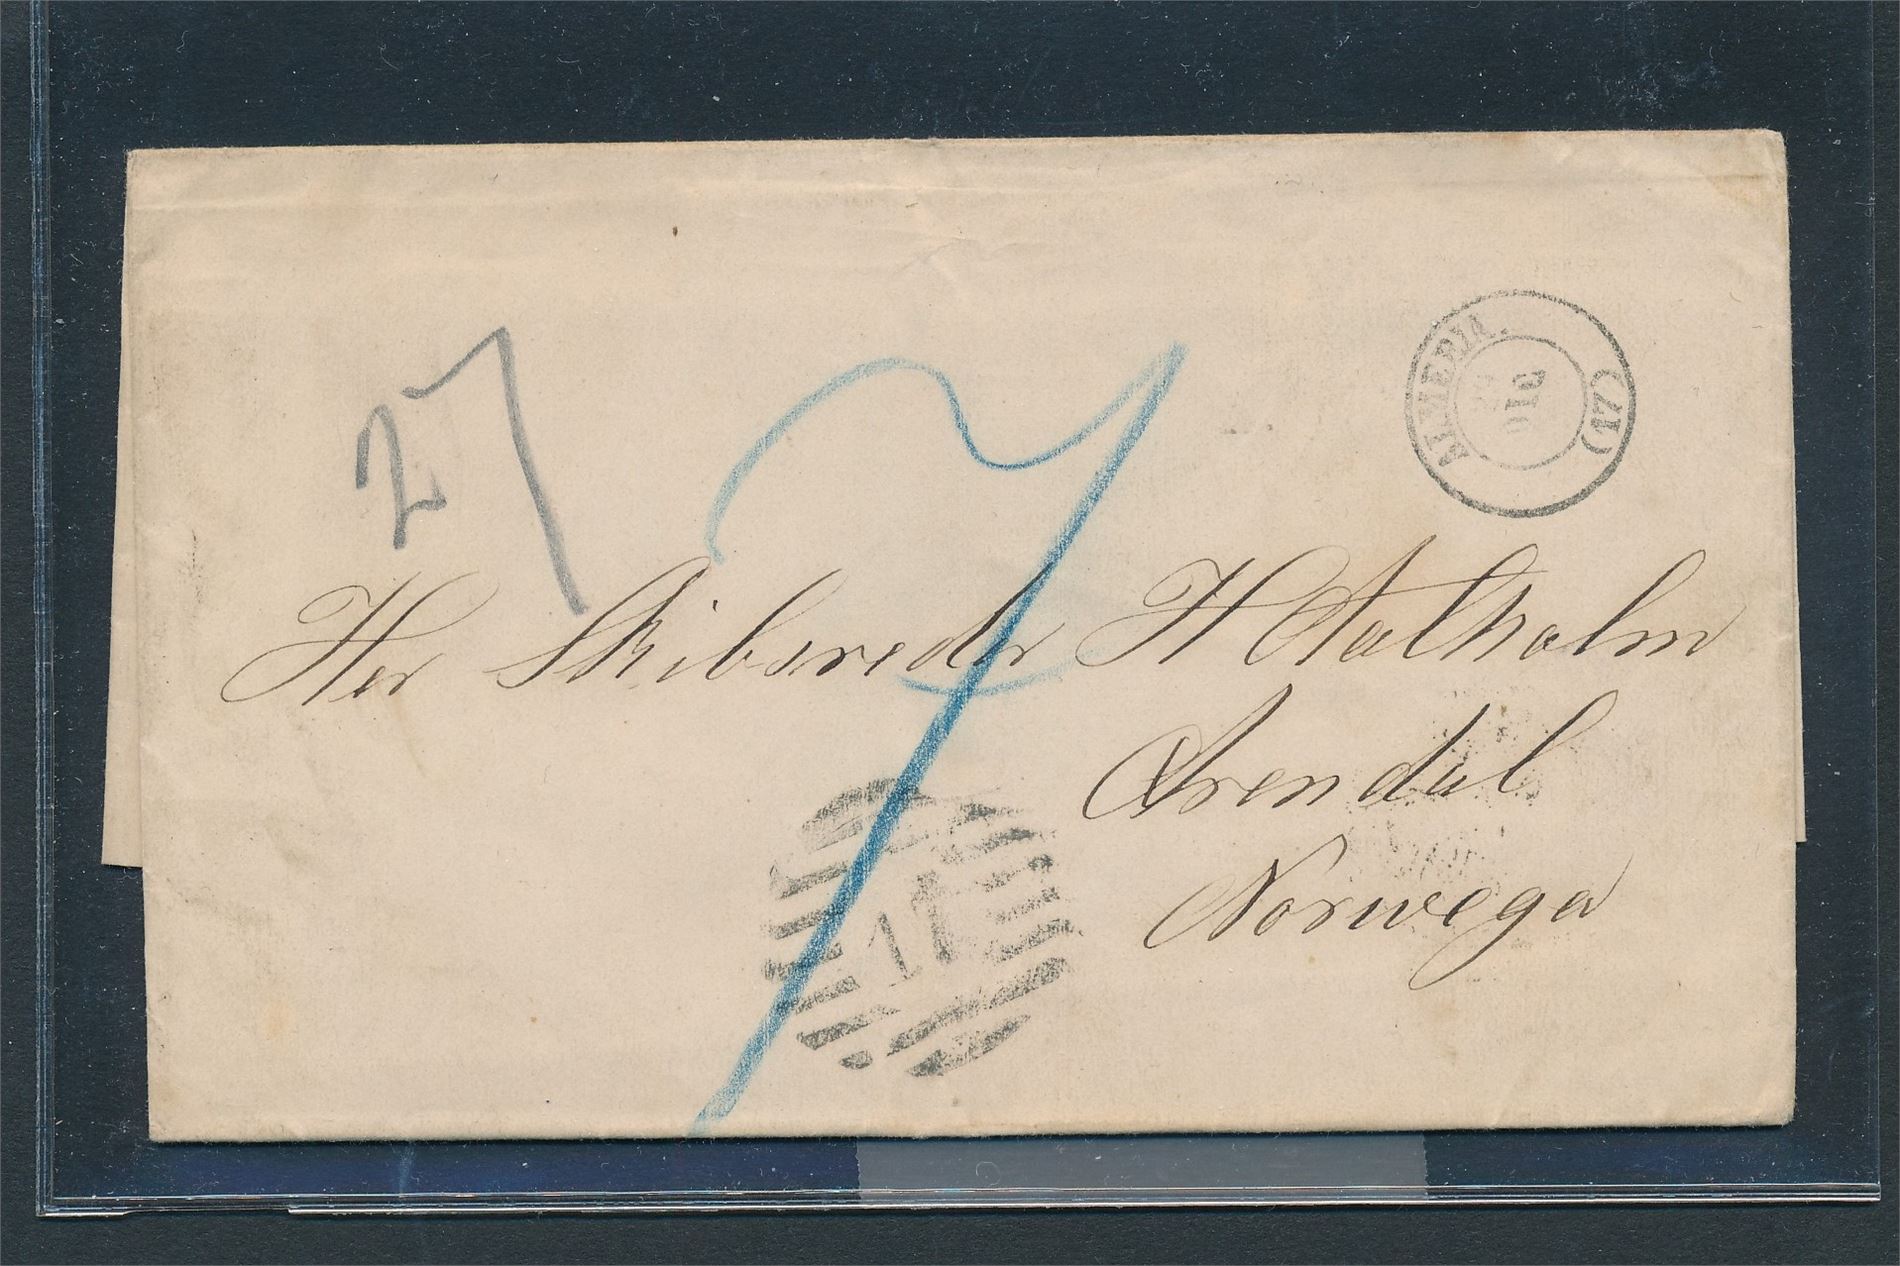 27
7
ALMERIA.
DIC
Her Skibsreder H Aalholm
Arendal
Norwega